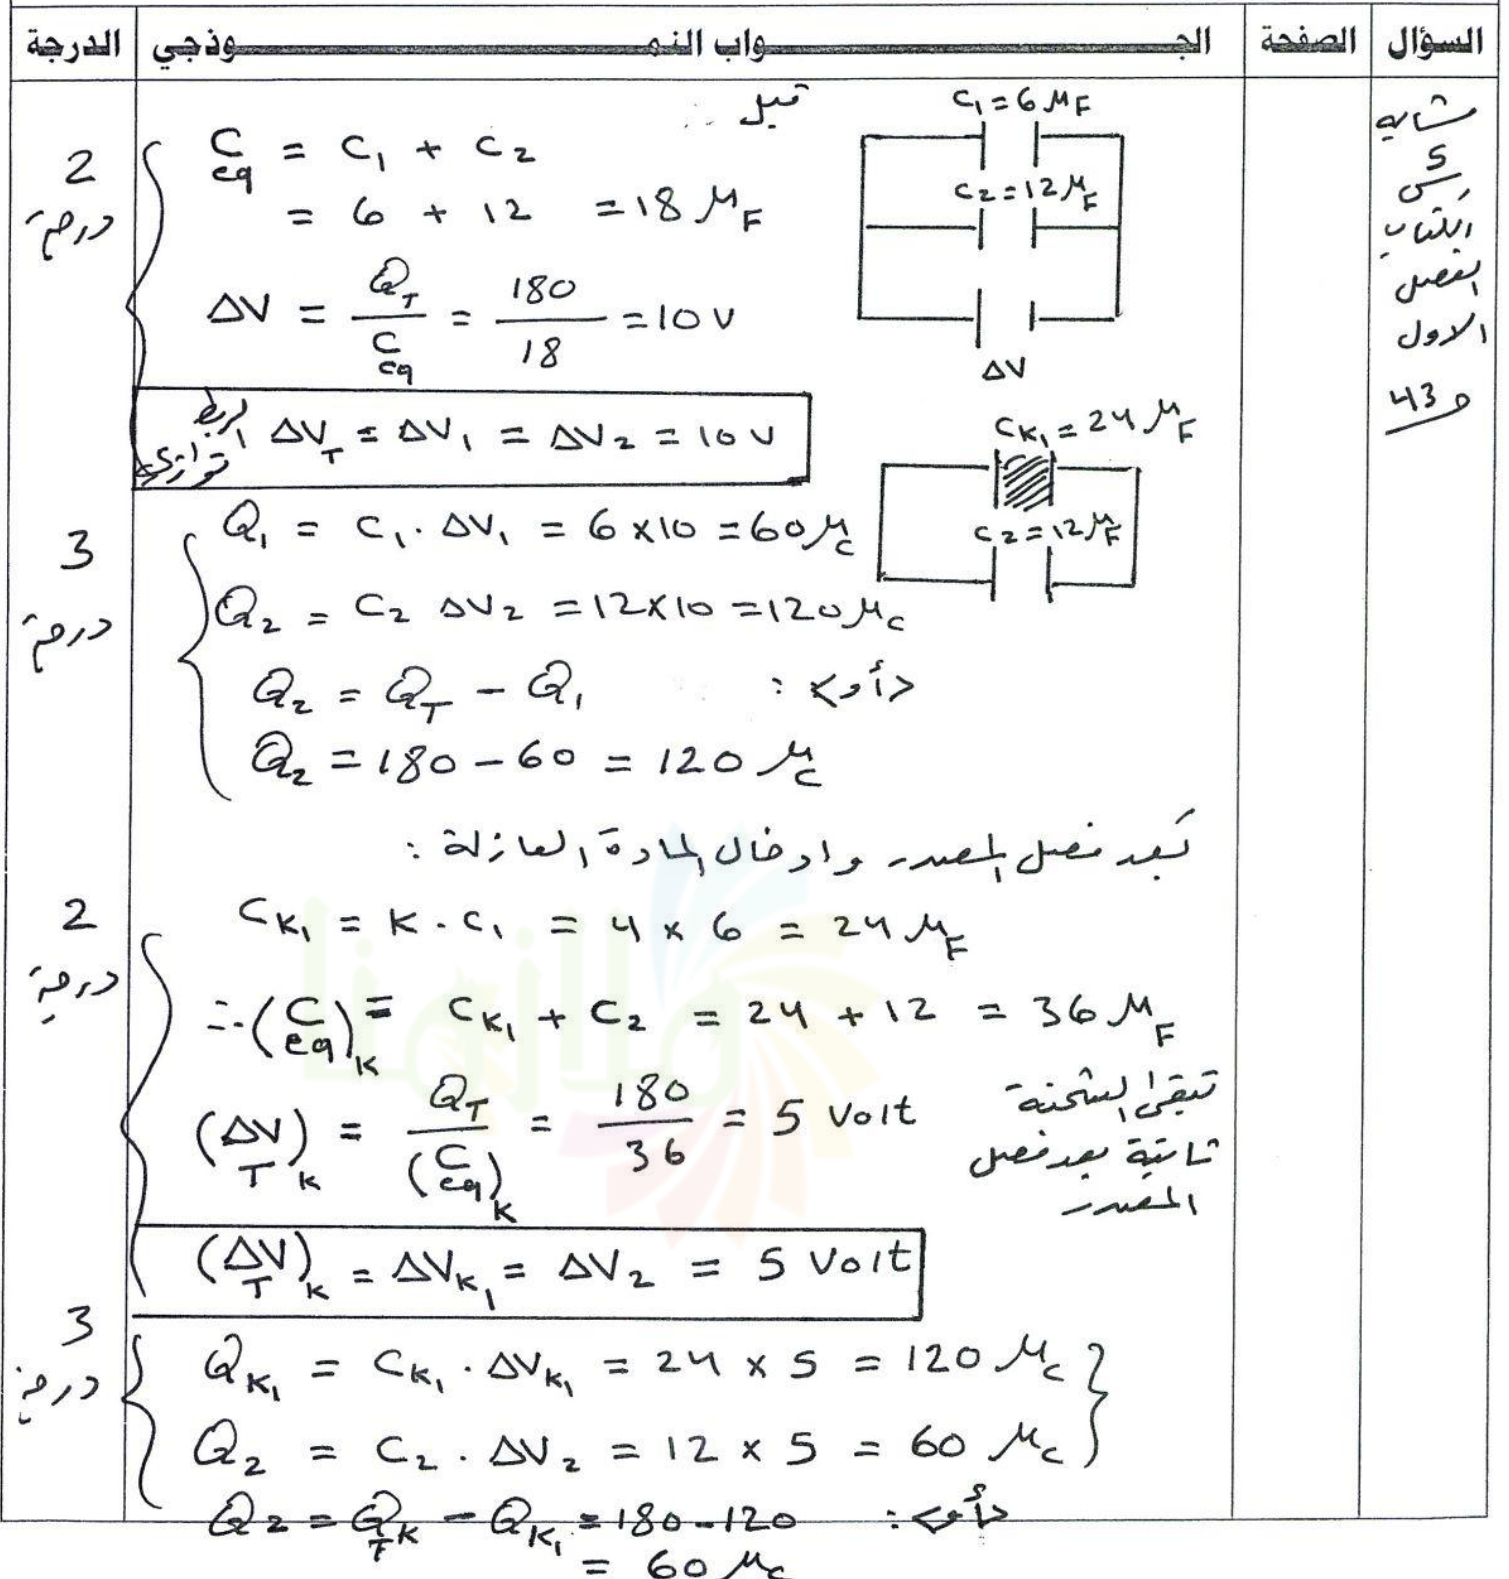 السؤال الصفحة الجـواب النمـوذجي الدرجة
مشابه
س 5
الكتاب
الفصل
الاول
ص 43
قبل
C₁ = 6 μF
C₂ = 12 μF
ΔV
2
درجة
Ceq = C₁ + C₂
= 6 + 12 = 18 μF
ΔV = QT / Ceq = 180 / 18 = 10 V
الربط توازي ΔVT = ΔV₁ = ΔV₂ = 10 V
CK₁ = 24 μF
C₂ = 12 μF
3
درجة
Q₁ = C₁ . ΔV₁ = 6 × 10 = 60 μC
Q₂ = C₂ ΔV₂ = 12 × 10 = 120 μC
<أو> :
Q₂ = QT − Q₁
Q₂ = 180 − 60 = 120 μC
بعد فصل المصدر وادخال المادة العازلة :
2
درجة
CK₁ = K . C₁ = 4 × 6 = 24 μF
∴ (Ceq)K = CK₁ + C₂ = 24 + 12 = 36 μF
(ΔVT)K = QT / (Ceq)K = 180 / 36 = 5 Volt
تبقى الشحنة
ثابتة بعد فصل
المصدر
(ΔVT)K = ΔVK₁ = ΔV₂ = 5 Volt
3
درجة
QK₁ = CK₁ . ΔVK₁ = 24 × 5 = 120 μC
Q₂ = C₂ . ΔV₂ = 12 × 5 = 60 μC
<أو> :
Q₂ = QTK − QK₁ = 180 − 120
= 60 μC
ملازمنا